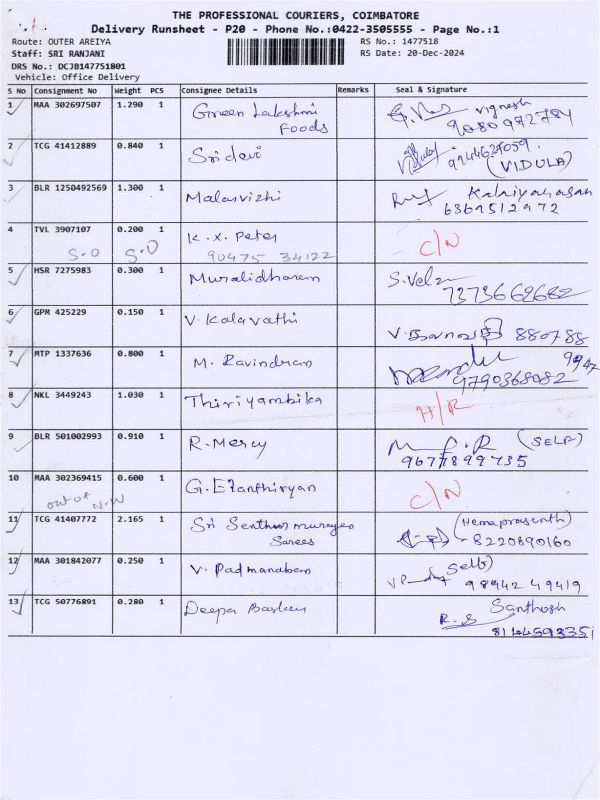 THE PROFESSIONAL COURIERS, COIMBATORE
Delivery Runsheet - P20 - Phone No.:0422-3505555 - Page No.:1
Route: OUTER AREIYA RS No.: 1477518
Staff: SRI RANJANI RS Date: 20-Dec-2024
DRS No.: DCJB147751801
Vehicle: Office Delivery
S No Consignment No Weight PCS Consignee Details Remarks Seal & Signature
1 MAA 302697507 1.290 1 Green Lakshmi Vignesh
Foods 9080972784
2 TCG 41412889 0.840 1 Sridevi 9244627059
(VIDULA)
3 BLR 1250492569 1.300 1 Malarvizhi
6369512972
4 TVL 3907107 0.200 1 K.X. Peter C/N
S-O S-O 90475 34122
5 HSR 7275983 0.300 1 Muralidharan S.Velu
7373662682
6 GPM 425229 0.150 1 V. Kalavathi 880788
7 MTP 1337636 0.800 1 M. Ravindran 9947
9790368082
8 NKL 3449243 1.030 1 Thiriyambika H/R
9 BLR 501002993 0.910 1 R. Mercy (SELF)
9677899735
10 MAA 302369415 0.600 1 G. Elanthiryan C/N
out of N.W
11 TCG 41407772 2.165 1 Sri Senthur murugan (Hemaprasanth)
Sarees 8220890160
12 MAA 301842077 0.250 1 V. Padmanaban Self)
98942 49419
13 TCG 50776891 0.280 1 Deepa Santhosh
R.S
8114593351